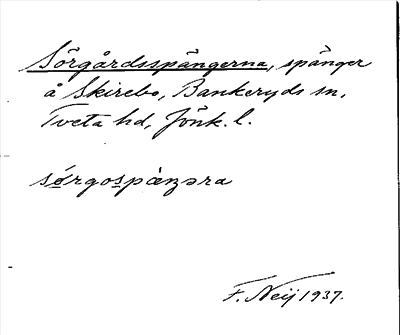 Sörgårdsspängerna, spänger
å Skirebo, Bankeryds sn,
Tveta hd, Jönk. l.
sǿrgos̲pæ̀ŋəra
F. Neij 1937.